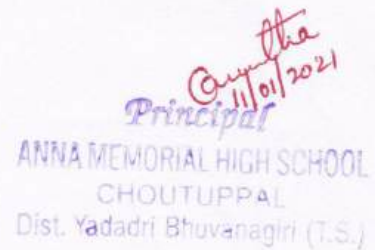 11/01/2021
Principal
ANNA MEMORIAL HIGH SCHOOL
CHOUTUPPAL
Dist. Yadadri Bhuvanagiri (T.S.)